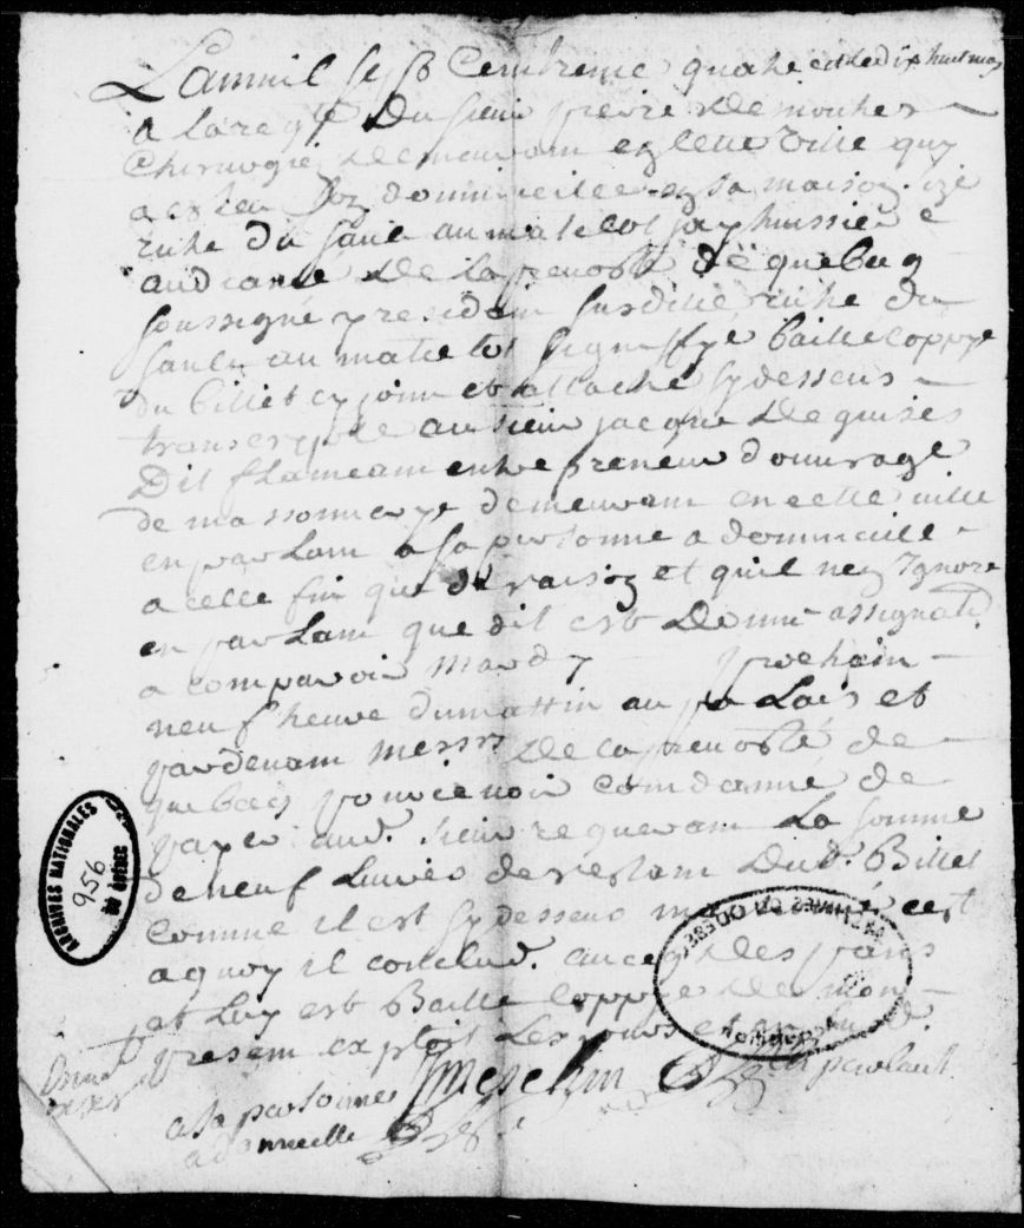 Lanmil sept Cent trente quatre et le dix huit may
a la reqte Du sieur pierre De
Chirurgie Demeurant en cette Ville quy
a eslu son dommicille en sa maison size
ruhe du sault au matelot jay huissier
audiancie De la prevosté de quebecq
soussigné y residant susditte ruhe du
sault au matelot signiffyé baillé coppye
du billet cy joint et attaché sy dessus
transcrypte au sieur jacque Deguises
Dit flament entrepreneur douvrage
de massonnerye demeurant en cette ville
en parlant a sa personne a dommicille
a celle fin que de raison et quil nen Ignore
en parlant que dit est Donné assignatn
a comparoir mardy prochain
neuf heure du mattin au palais et
pardevant messrs De la prevosté de
quebecq pour ce voir comdamné de
payer audt. sieur requerant La somme
de neuf Livres de restant Dudt. Billet
comme il est sy dessus cest
a quoy il conclud. avecq Des pans
et Luy est Baillé Coppye De mon
present exploit Les jours et an susd.
en parlant
a sa personne
a dommicille
ARCHIVES NATIONALES
956
DU QUÉBEC
ARCHIVES DU QUEBEC